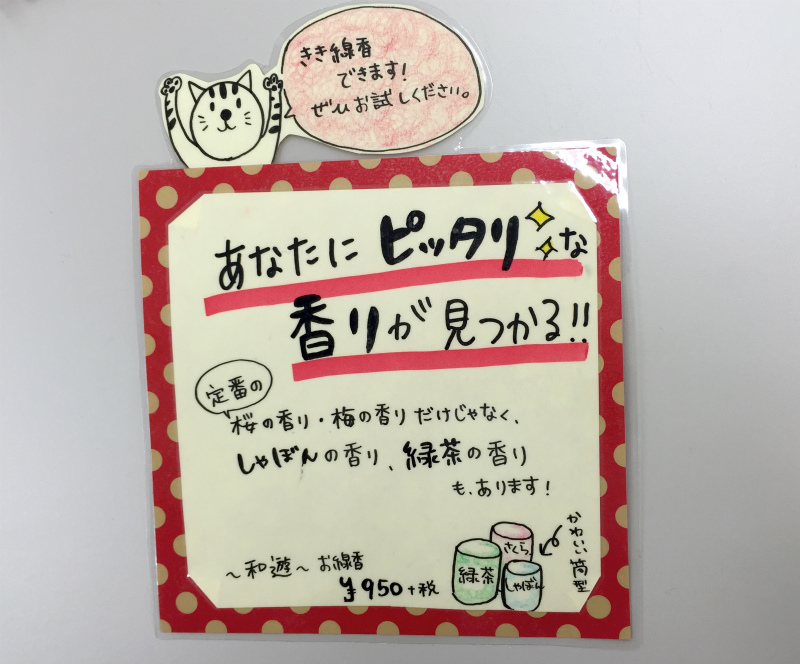 きき線香
できます!
ぜひお試しください。
あなたにピッタリな
香りが見つかる!!
定番の
桜の香り・梅の香りだけじゃなく、
しゃぼんの香り、緑茶の香り
も、あります!
かわいい筒型
さくら
緑茶
しゃぼん
〜和遊〜お線香
¥950+税